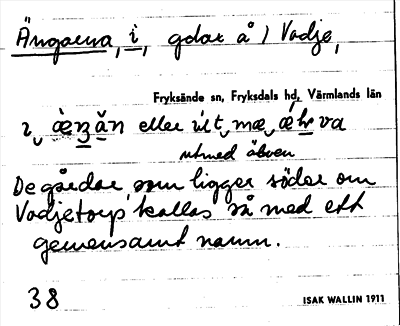 Ängarna, i, gdar å 1 Vadje,
Fryksände sn, Fryksdals hd, Värmlands län
eller
utmed älven
De gårdar som ligger söder om
Vadjetorp kallas så med ett
gemensamt namn.
38
ISAK WALLIN 1911